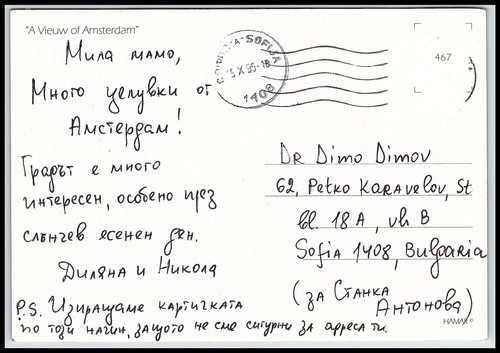 "A Vieuw of Amsterdam"
Мила мамо,
Много целувки от
Амстердам!
Градът е много
интересен, особено през
слънчев есенен ден.
Диляна и Никола
P.S. Изпращаме картичката
по този начин, защото не сме сигурни за адреса ти.
SOFIJA
X 95-18
1408
467
Dr Dimo Dimov
62, Petko Karavelov, St
bl. 18 A, vh B
Sofia 1408, Bulgaria
(за Станка
Антонова)
HAMAR ©